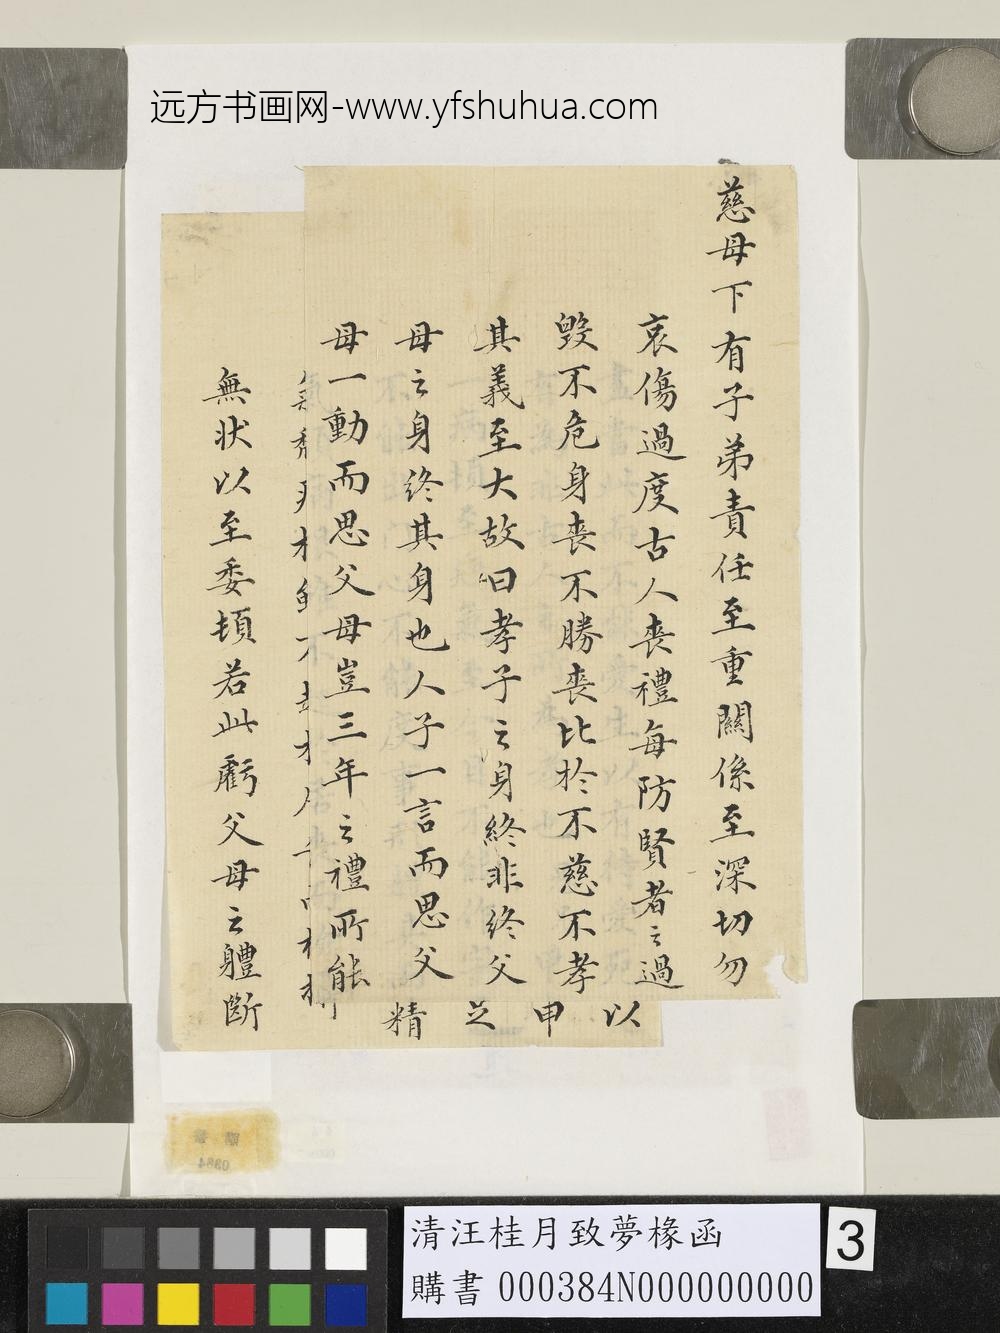 远方书画网-www.yfshuhua.com
慈母下有子弟責任至重關係至深切勿
哀傷過度古人喪禮每防賢者之過
毀不危身喪不勝喪比於不慈不孝
其義至大故曰孝子之身終非終父
母之身終其身也人子一言而思父
母一動而思父母豈三年之禮所能
無狀以至委頓若此虧父母之體斷
以
申
之
精
清汪桂月致夢椽函
購書 000384N000000000
3